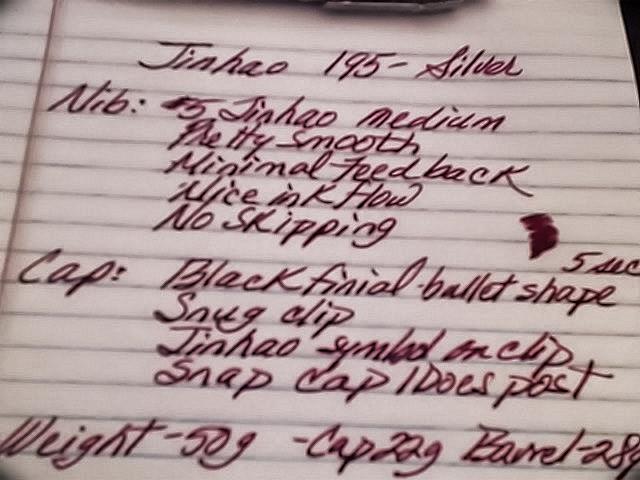 Jinhao 195 - Silver
Nib: #5 Jinhao medium
Pretty smooth
Minimal feedback
Nice ink flow
No skipping
5 sec
Cap: Black finial - bullet shape
Snug clip
Jinhao symbol on clip
Snap Cap / Does post
Weight - 50g - Cap 22g Barrel - 28g